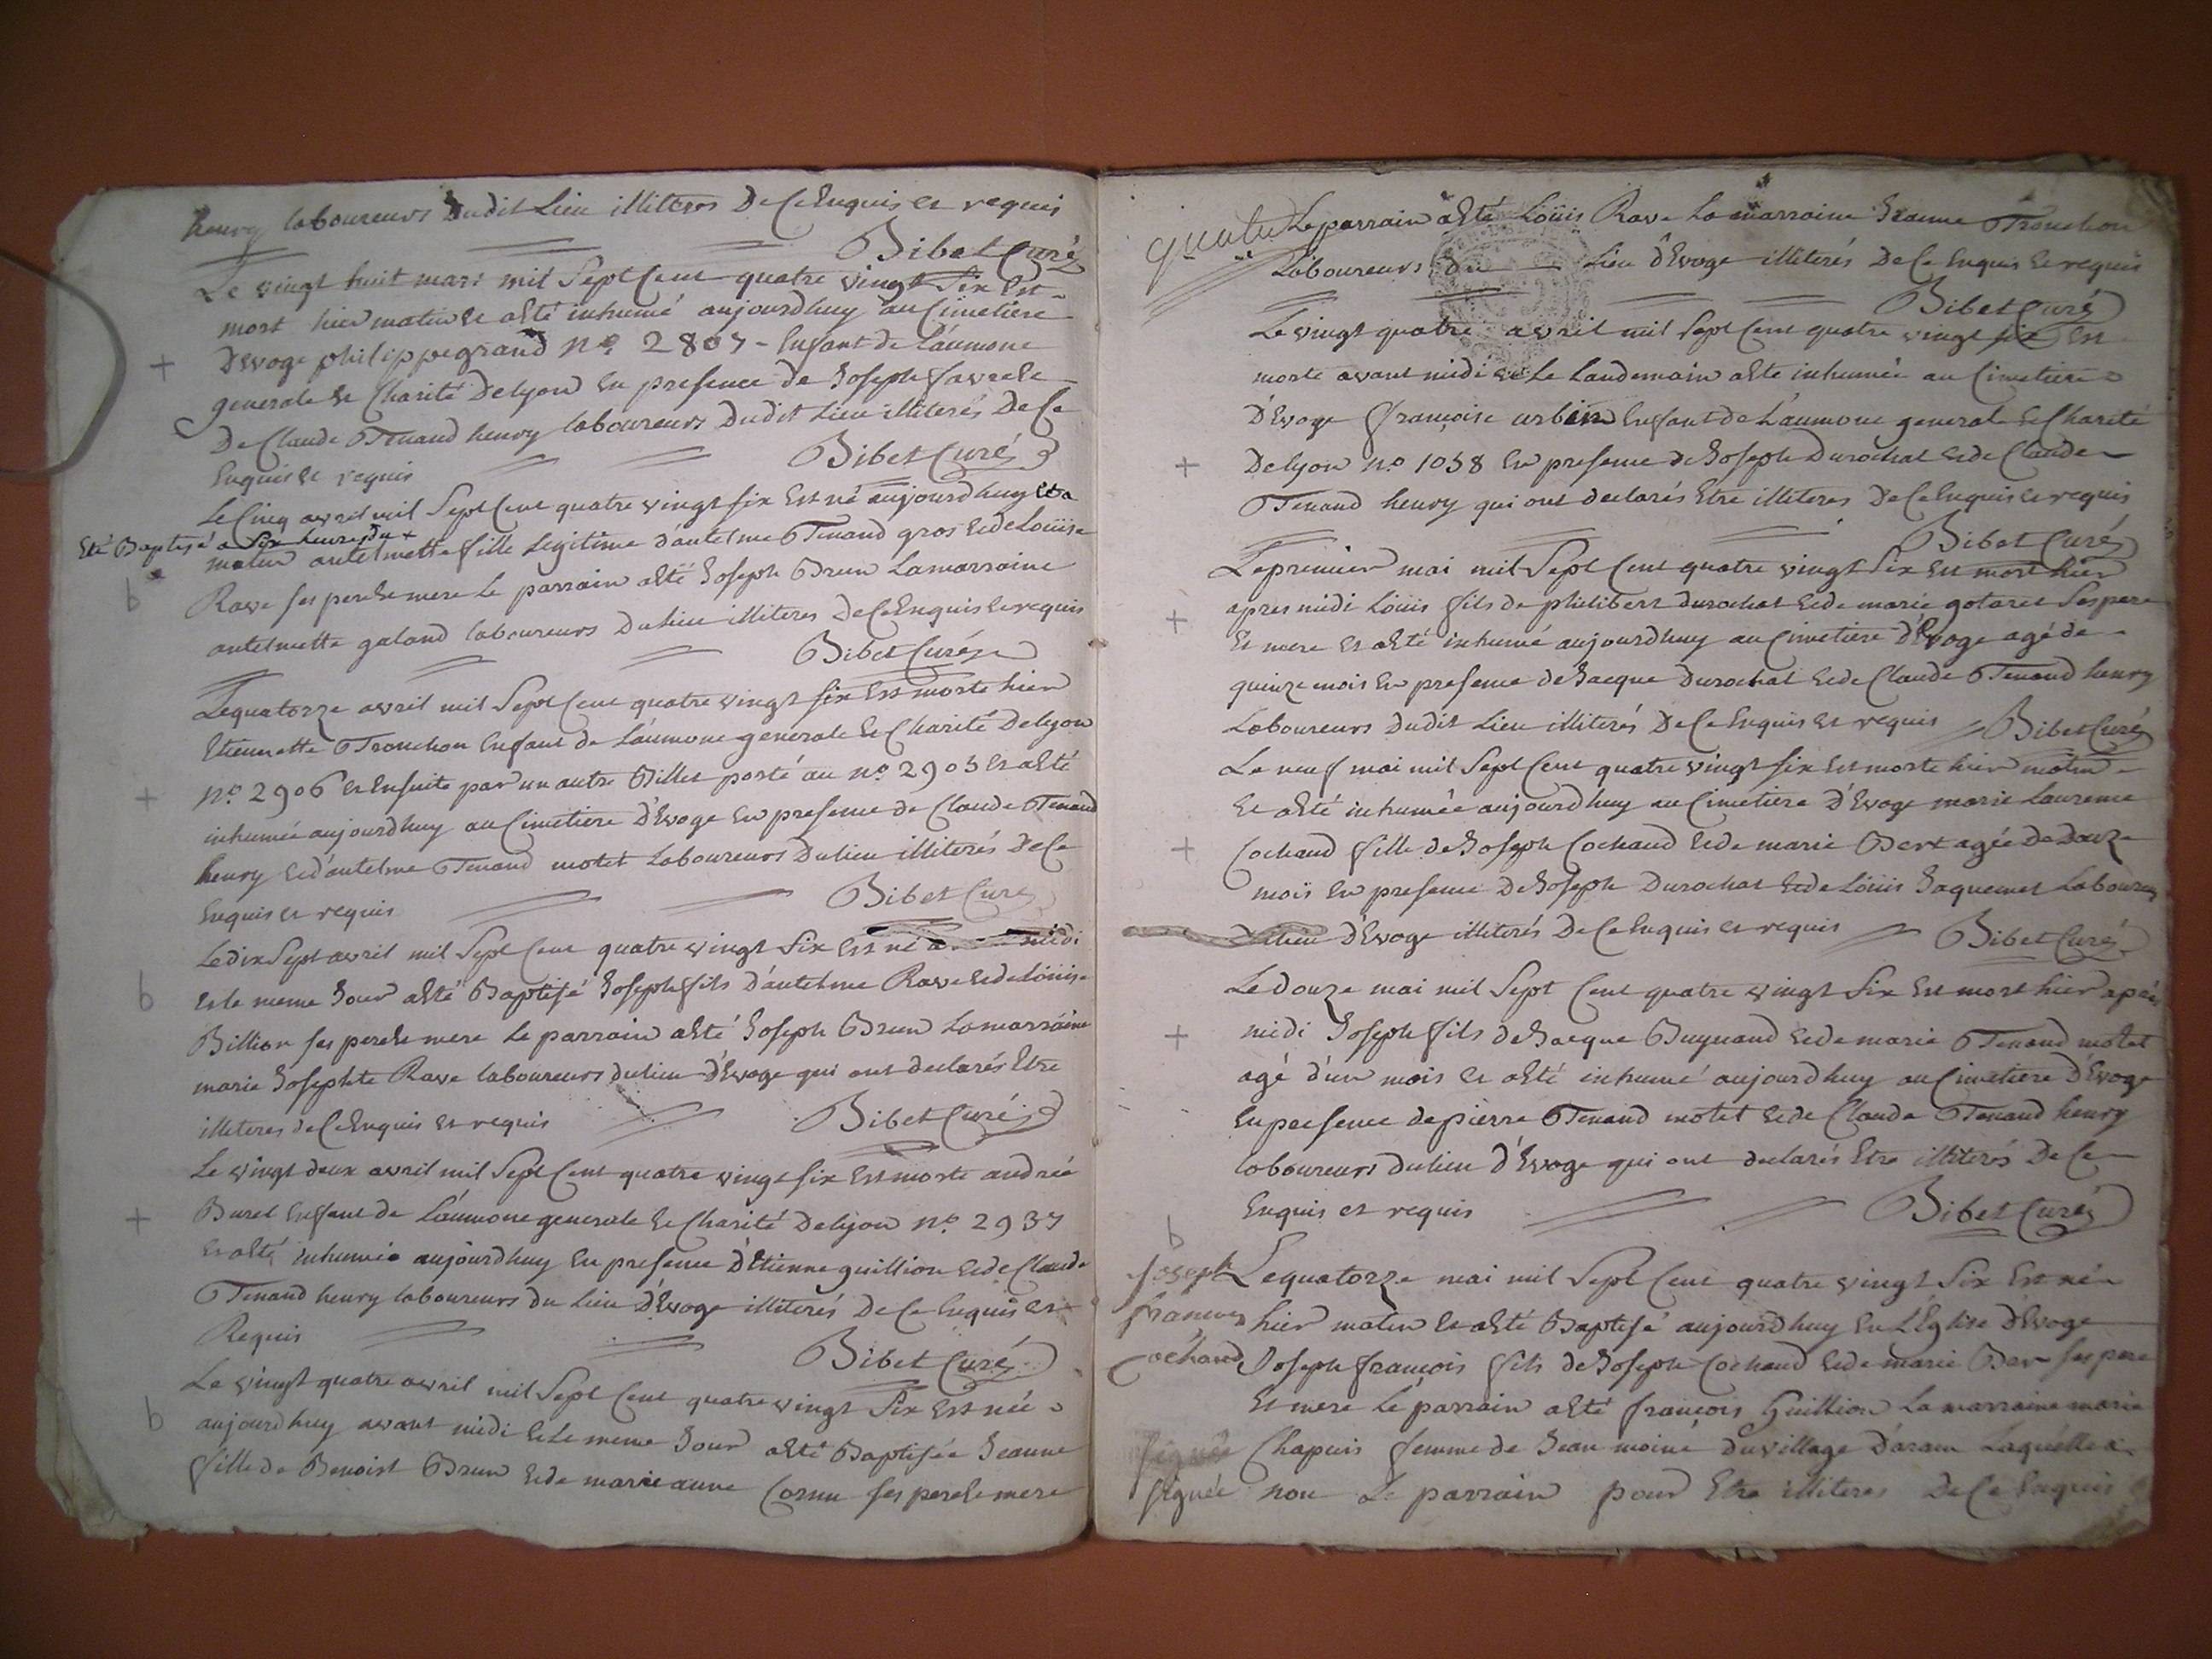 henry laboureurs dudit Lieu illiteres De Ce Enquis et requis
Bibet Curé
Le vingt huit mars mil Sept Cent quatre vingt Six Est
mort hier matin et a Eté inhumé aujourdhuy au Cimetière
+ D'Evoge philippe grand n.o 2807 - Enfant de L'aumone
generale et Charité De lyon En presence de Joseph favre et
De Claude Tenand henry laboureurs Dudit Lieu illiterés De Ce
Enquis et requis Bibet Curé
Le Cinq avril mil Sept Cent quatre vingt six Est né aujourdhuy et a
Eté Baptisé a Six heures du +
matin antelmette fille Legitime d'antelme Tenand gros et de Loüise
b Rave ses pere et mere Le parrain a Eté Joseph Brun La marraine
antelmette galand laboureurs Du lieu illiteres De Ce Enquis et requis
Bibet Curé
Le quatorze avril mil Sept Cent quatre vingt six Est morte hier
Etiennette Tronchon Enfant de L'aumone generale et Charité De lyon
+ n.o 2906 et Ensuite par un autre Billet porté au n.o 2905 et a Eté
inhumée aujourdhuy au Cimetiere D'Evoge En presence de Claude Tenand
henry et d'antelme Tenand motet Laboureurs Du lieu illiterés De Ce
Enquis et requis Bibet Curé
Le dix Sept avril mil Sept Cent quatre vingt Six Est né a midi
b et le meme Jour a Eté Baptisé Joseph fils D'antelme Rave et de Loüise
Billion ses pere et mere Le parrain a Eté Joseph Brun La marraine
marie Josephte Rave laboureurs du lieu D'Evoge qui ont declarés Etre
illiteres de Ce Enquis et requis Bibet Curé
Le vingt deux avril mil Sept Cent quatre vingt six Est morte andrée
+ Buret Enfant de L'aumone generale et Charité De lyon n.o 2937
et a Eté inhumée aujourdhuy En presence D'Etienne guillion et de Claude
Tenand henry laboureurs du Lieu D'Evoge illiterés De Ce Enquis et
Requis
Bibet Curé
Le vingt quatre avril mil Sept Cent quatre vingt Six Est née
b aujourdhuy avant midi et Le meme Jour a Eté Baptisée Jeanne
fille de Benoist Brun et de marie anne Cornu ses pere et mere
quatre Le parrain a Eté Loüis Rave La marraine Jeanne Tronchon
Laboureurs du Lieu D'Evoge illiterés De Ce Enquis et requis
Bibet Curé
Le vingt quatre avril mil Sept Cent quatre vingt six Est
morte avant midi et Le Landemain a Eté inhumée au Cimetiere
D'Evoge françoise urbin Enfant de L'aumone general et Charité
+ De lyon n.o 1038 En presence de Joseph Durochat et de Claude
Tenand henry qui ont declarés Etre illiteres De Ce Enquis et requis
Bibet Curé
Le premier mai mil Sept Cent quatre vingt Six Est mort hier
+ apres midi Loüis fils de philibert durochat et de marie gotaret Ses pere
Et mere et a Eté inhumé aujourdhuy au Cimetiere D'Evoge agé de
quinze mois En presence de Jacque Durochat et de Claude Tenand henry
Laboureurs dudit Lieu illiterés De Ce Enquis et requis Bibet Curé
Le neuf mai mil Sept Cent quatre vingt six Est morte hier matin
Et a Eté inhumée aujourd'huy au Cimetiere D'Evoge marie Laurence
+ Cochaud fille de Joseph Cochaud et de marie Bert agée De Douze
mois En presence De Joseph Durochat et de Loüis Jaquemet Laboureurs
du lieu D'Evoge illiterés De Ce Enquis et requis Bibet Curé
Le Douze mai mil Sept Cent quatre vingt Six Est mort hier après
+ midi Joseph fils de Jacque Buynand et de marie Tenand motet
agé d'un mois et a Eté inhumé aujourdhuy au Cimetiere D'Evoge
En presence de pierre Tenand motet et de Claude Tenand henry
laboureurs du lieu D'Evoge qui ont declarés Etre illiterés De Ce
Enquis et requis Bibet Curé
b
Joseph Le quatorze mai mil Sept Cent quatre vingt Six Est né
francois hier matin et a Eté Baptisé aujourdhuy En L'Eglise D'Evoge
Cochaud Joseph françois fils de Joseph Cochaud et de marie Ber ses pere
Et mere Le parrain a Eté françois Guillion La marraine marie
signée Chapuis femme de Jean moine du village D'aran Laquelle a
signée non Le parrain pour Etre illiteres De Ce Enquis